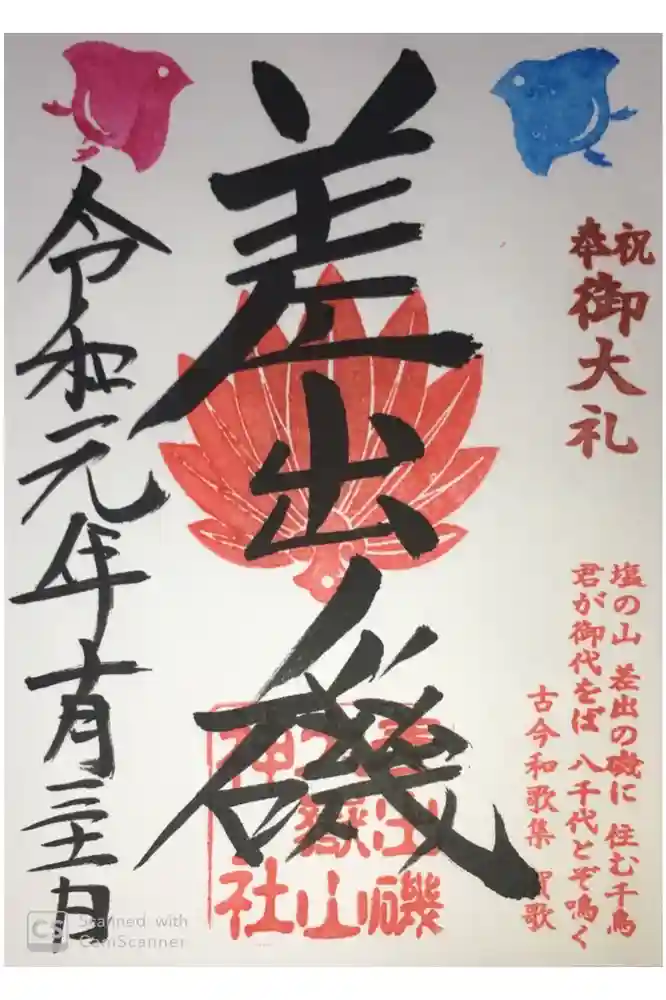 奉祝
御大礼
塩の山 差出の磯に 住む千鳥
君が御代をば 八千代とぞ鳴く
古今和歌集 賀歌
差出ノ磯
差出磯
大嶽山
神社
令和元年十月日
CS Scanned with
CamScanner